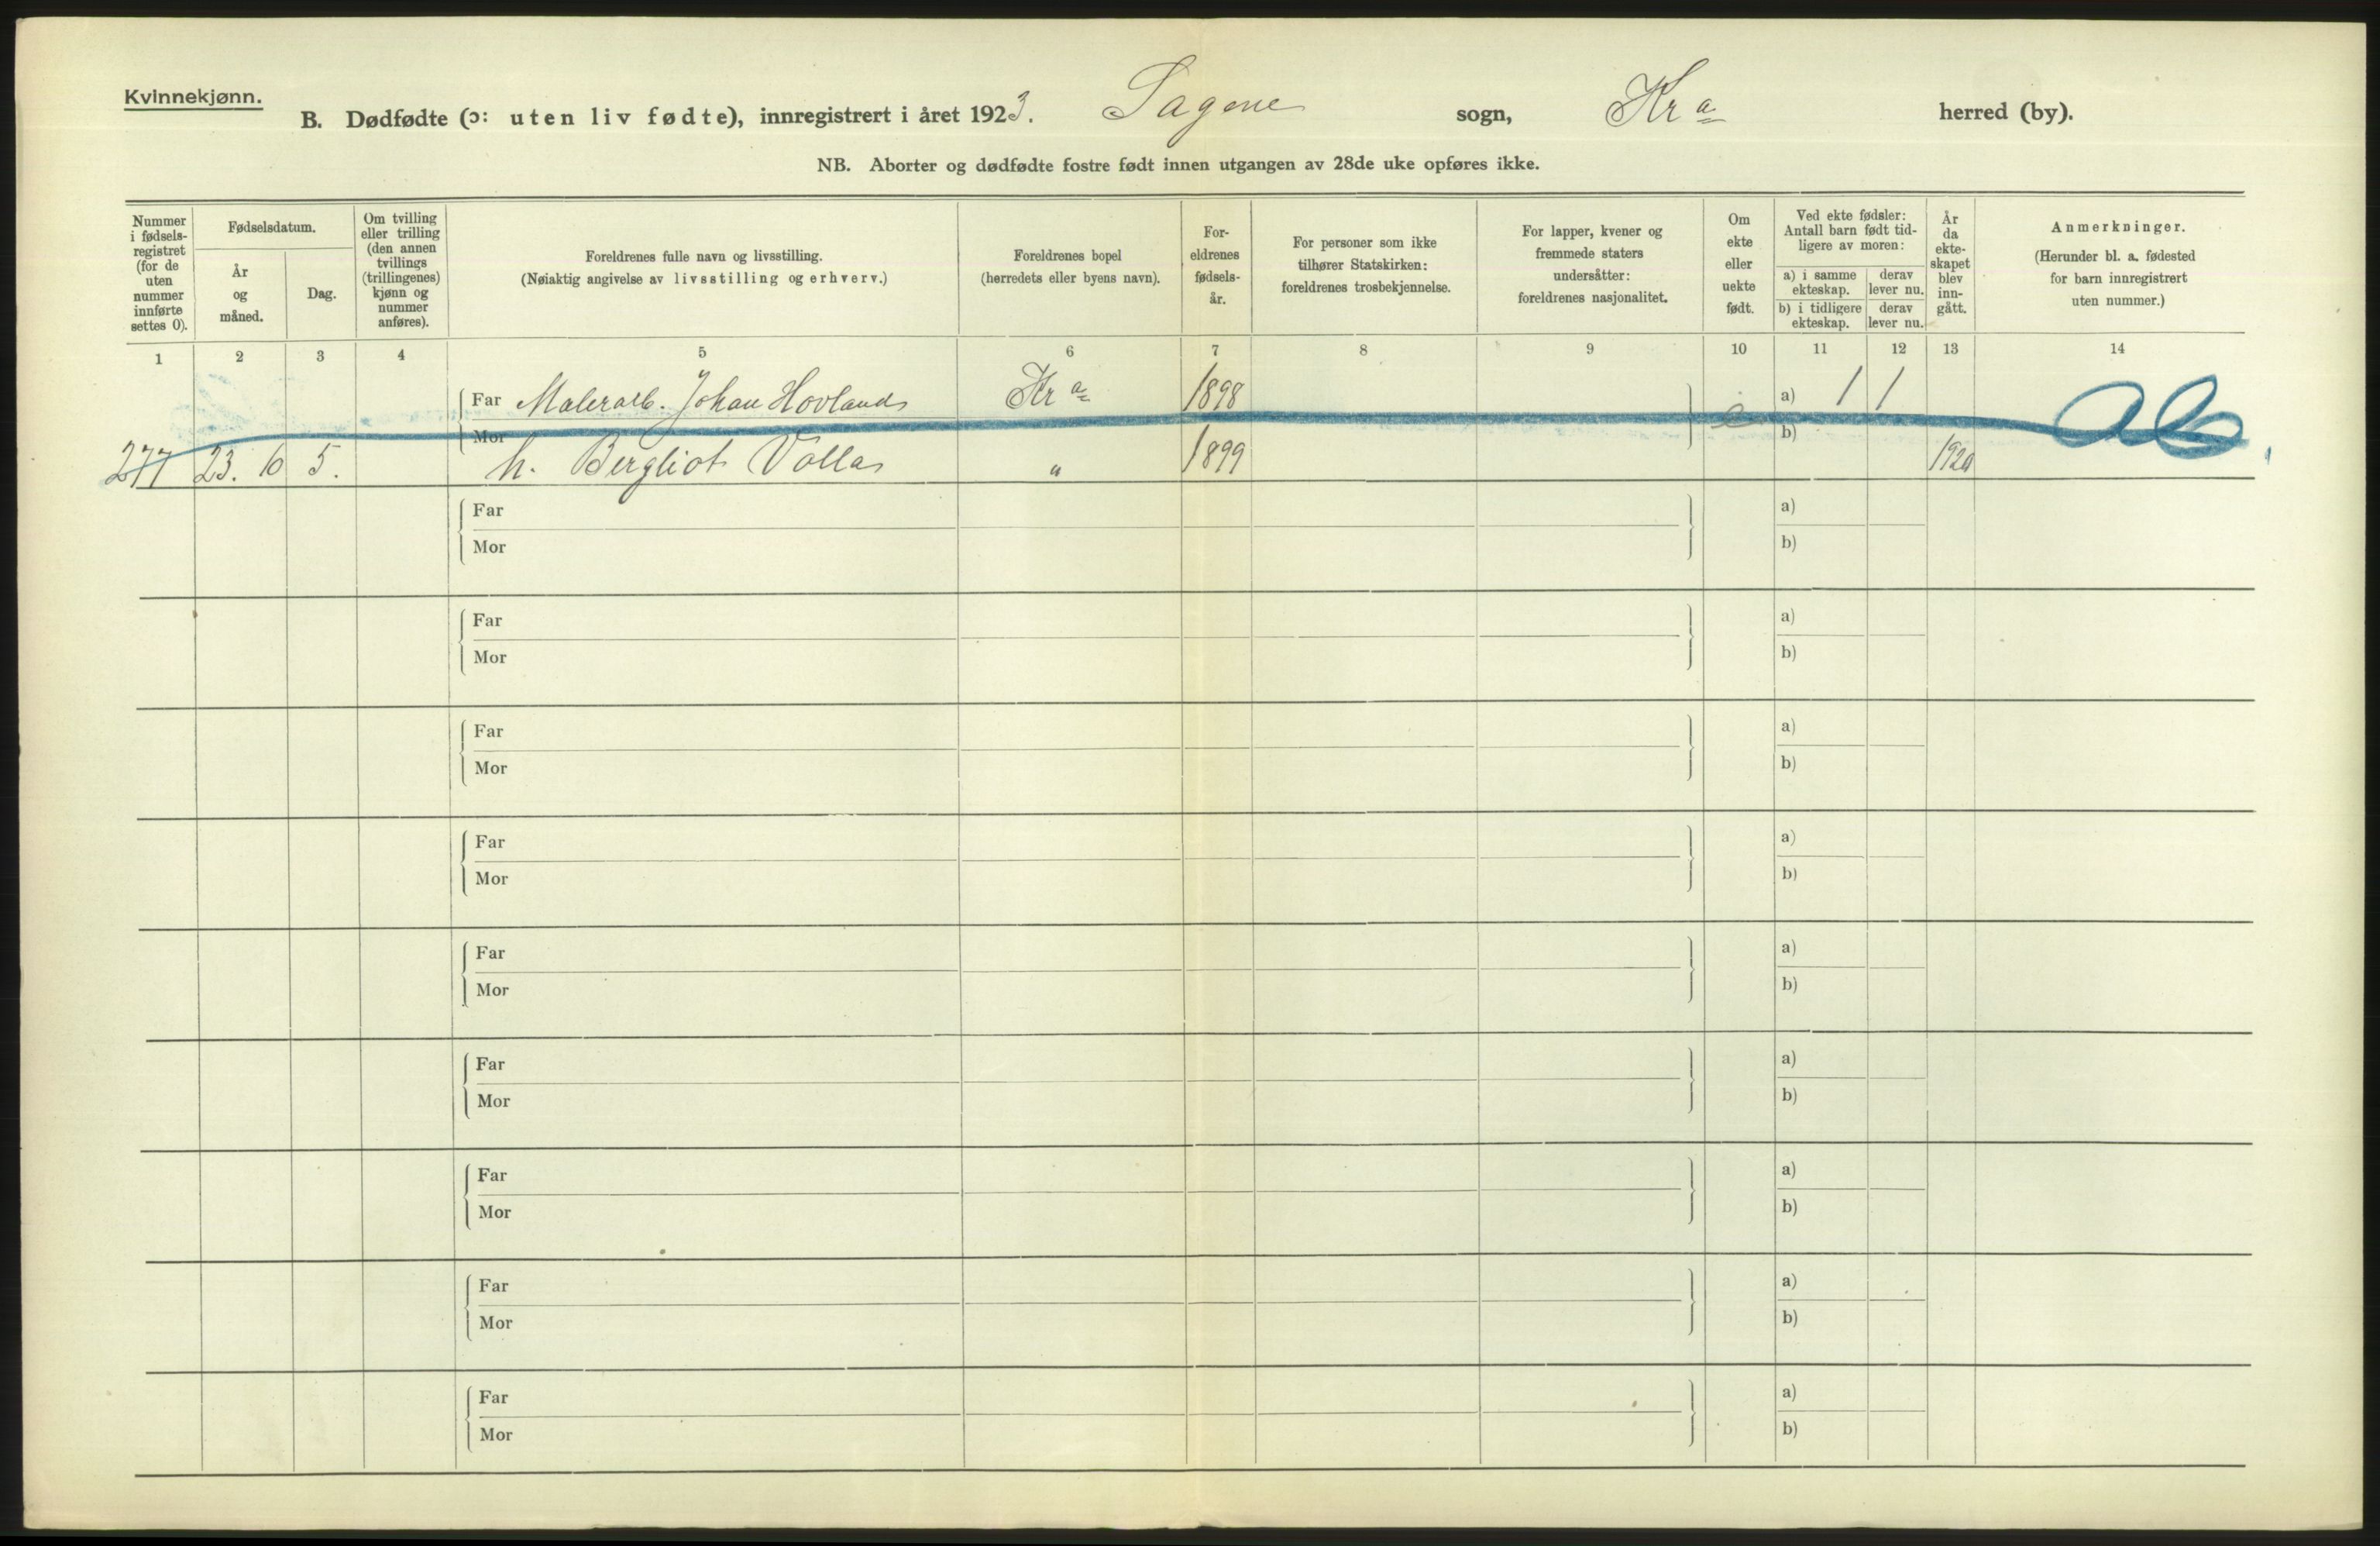 Kvinnekjønn.
B. Dødfødte (ɔ: uten liv fødte), innregistrert i året 1923. Sagene sogn, Kra herred (by).
NB. Aborter og dødfødte fostre født innen utgangen av 28de uke opføres ikke.
Nummer i fødsels-registret (for de uten nummer innførte settes 0).
Fødselsdatum.
År og måned.
Dag.
Om tvilling eller trilling (den annen tvillings (trillingenes) kjønn og nummer anføres).
Foreldrenes fulle navn og livsstilling.
(Nøiaktig angivelse av livsstilling og erhverv.)
Foreldrenes bopel
(herredets eller byens navn).
For-eldrenes fødsels-år.
For personer som ikke tilhører Statskirken: foreldrenes trosbekjennelse.
For lapper, kvener og fremmede staters undersåtter: foreldrenes nasjonalitet.
Om ekte eller uekte født.
Ved ekte fødsler: Antall barn født tid-ligere av moren:
a) i samme ekteskap. derav lever nu.
b) i tidligere ekteskap. derav lever nu.
År da ekte-skapet blev inn-gått.
Anmerkninger.
(Herunder bl. a. fødested for barn innregistrert uten nummer.)
1 2 3 4 5 6 7 8 9 10 11 12 13 14
Far Malerarb. Johan Hovland Kra 1898 e a) 1 1
Mor b)
277 23. 6 5. h. Bergliot Volla " 1899 1920
Far a)
Mor b)
Far a)
Mor b)
Far a)
Mor b)
Far a)
Mor b)
Far a)
Mor b)
Far a)
Mor b)
Far a)
Mor b)
Far a)
Mor b)
Far a)
Mor b)